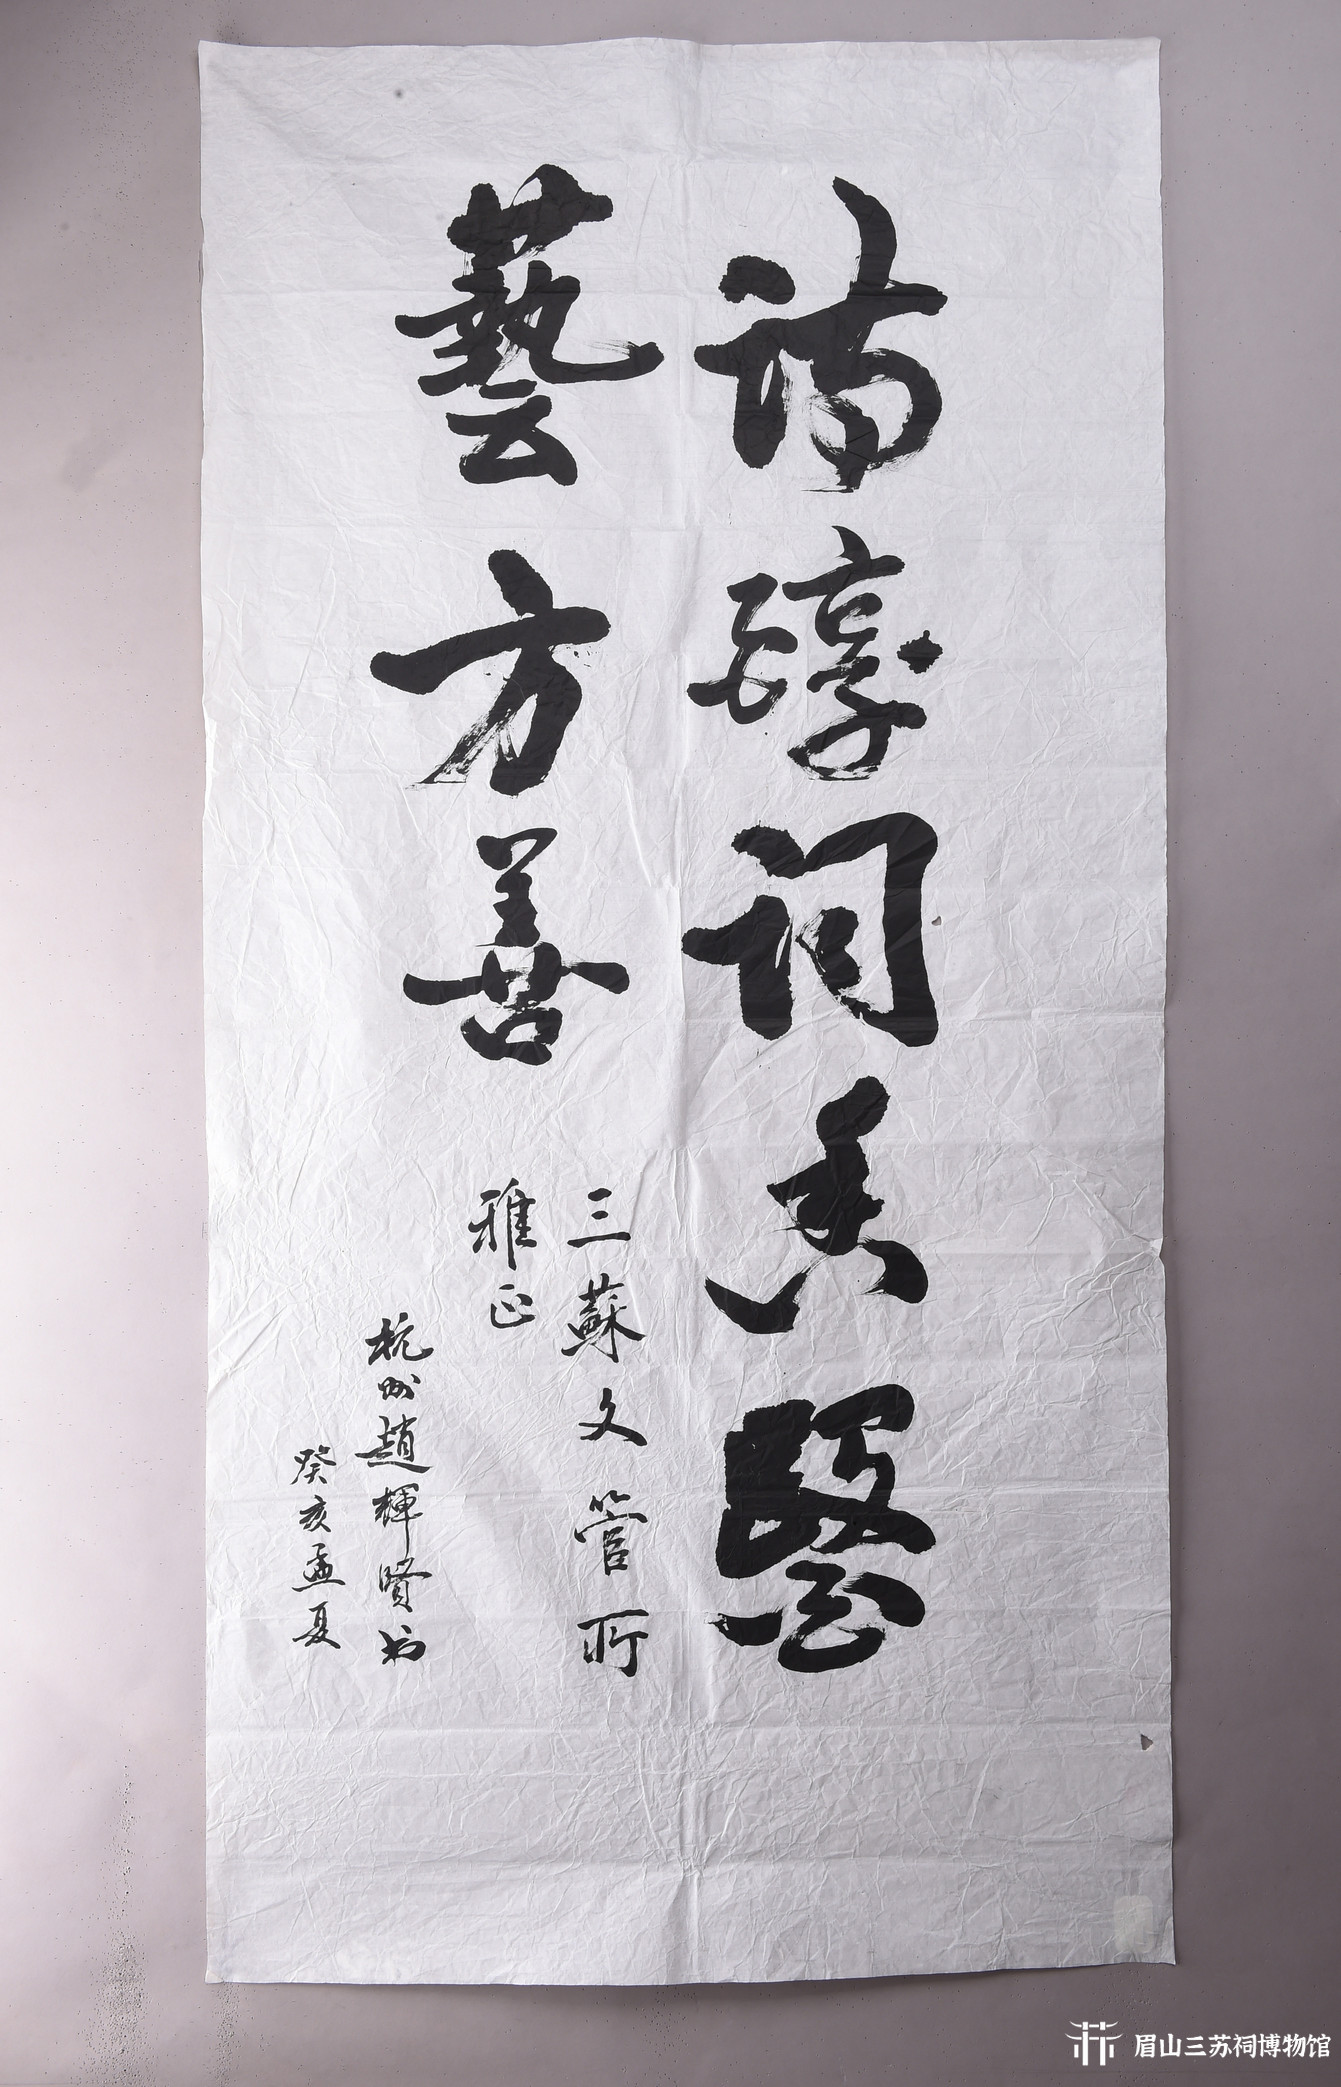 诗醇词香医
藝方善
三蘇文管所
雅正
杭州趙輝賢书
癸亥孟夏
眉山三苏祠博物馆